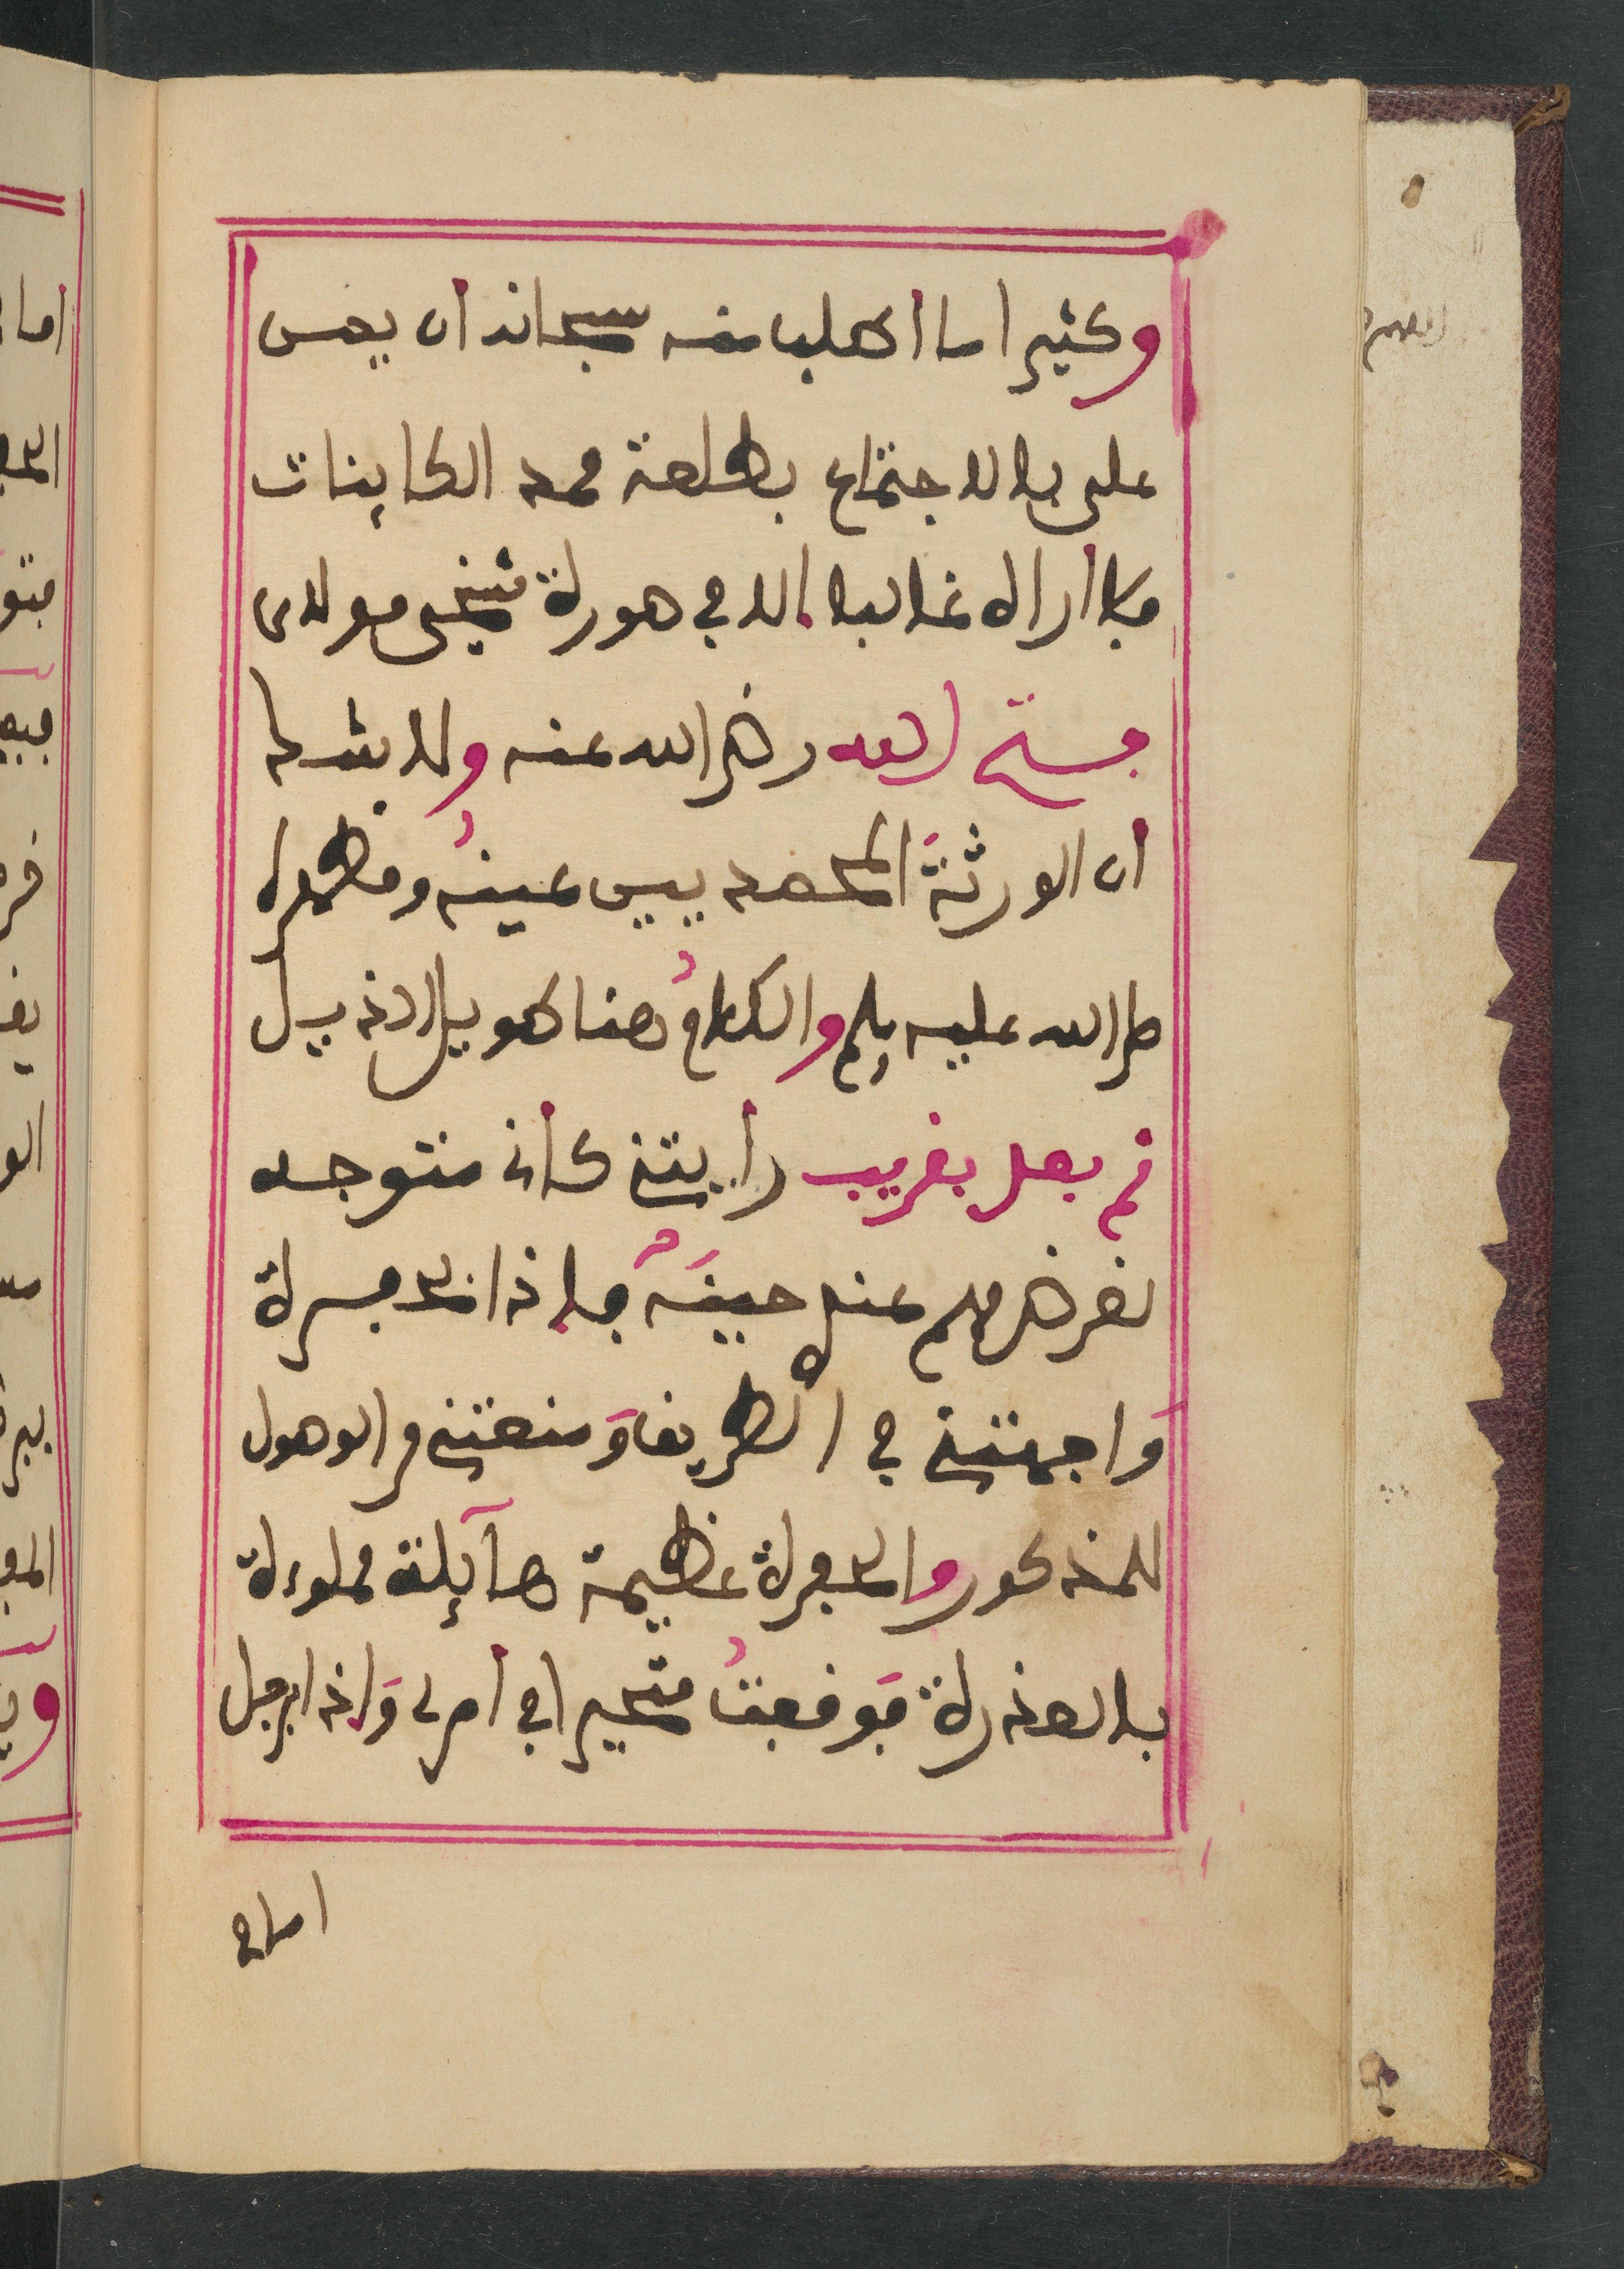 وكثيرا ما أطلب منه سبحانه أن يمن
على بالاجتماع بطلعة محمد الكاينات
فلا أراه غالبا الا في صورة شيخي مولاي
فتح الله رضي الله عنه ولا بشر ما
أن الورثة المحمديين عينه ومظهره
صلى الله عليه وسلم والكلام هنا طويل الذيل
ثم بعد بقريب رأيتني كأني متوجه
لغرض مهم عند حبينه فإذا نحو فسرة
واجهتني في الطريق ومنعتني من الوصول
للمذكور والحفرة عظيمة هآيلة مملوءة
بالعذرة فوقفت متحيرا في أمري وإذا برجل
اماي